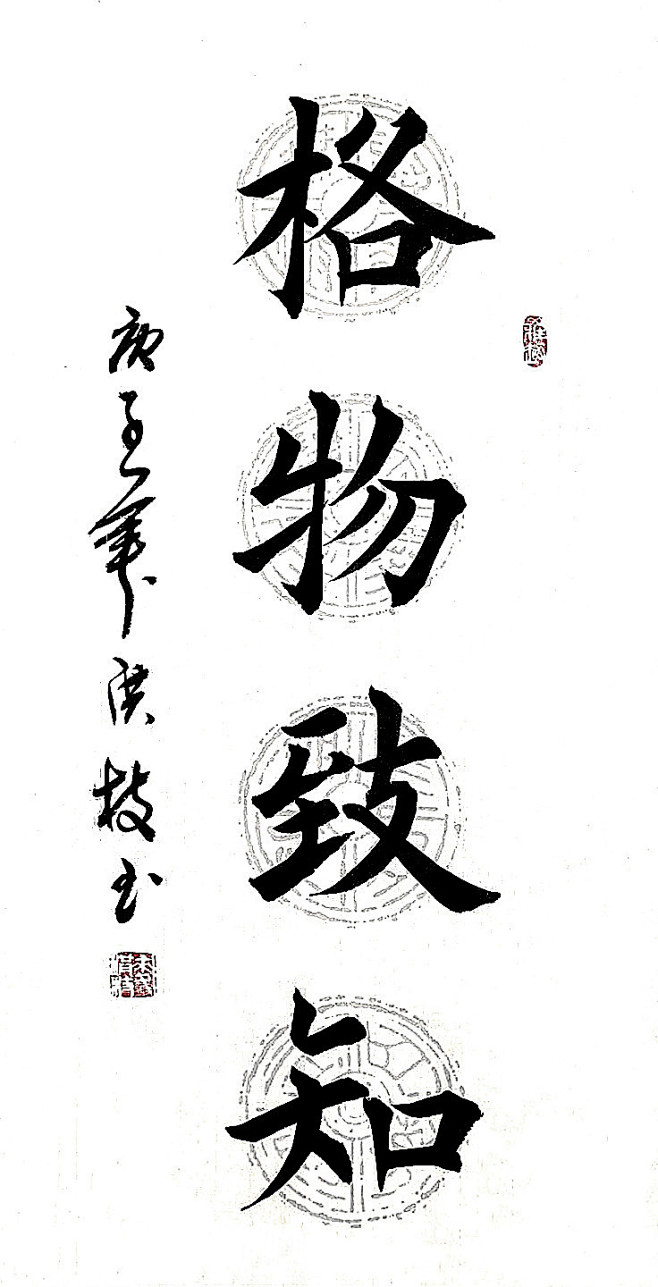 格物致知
庚子年洪枝书